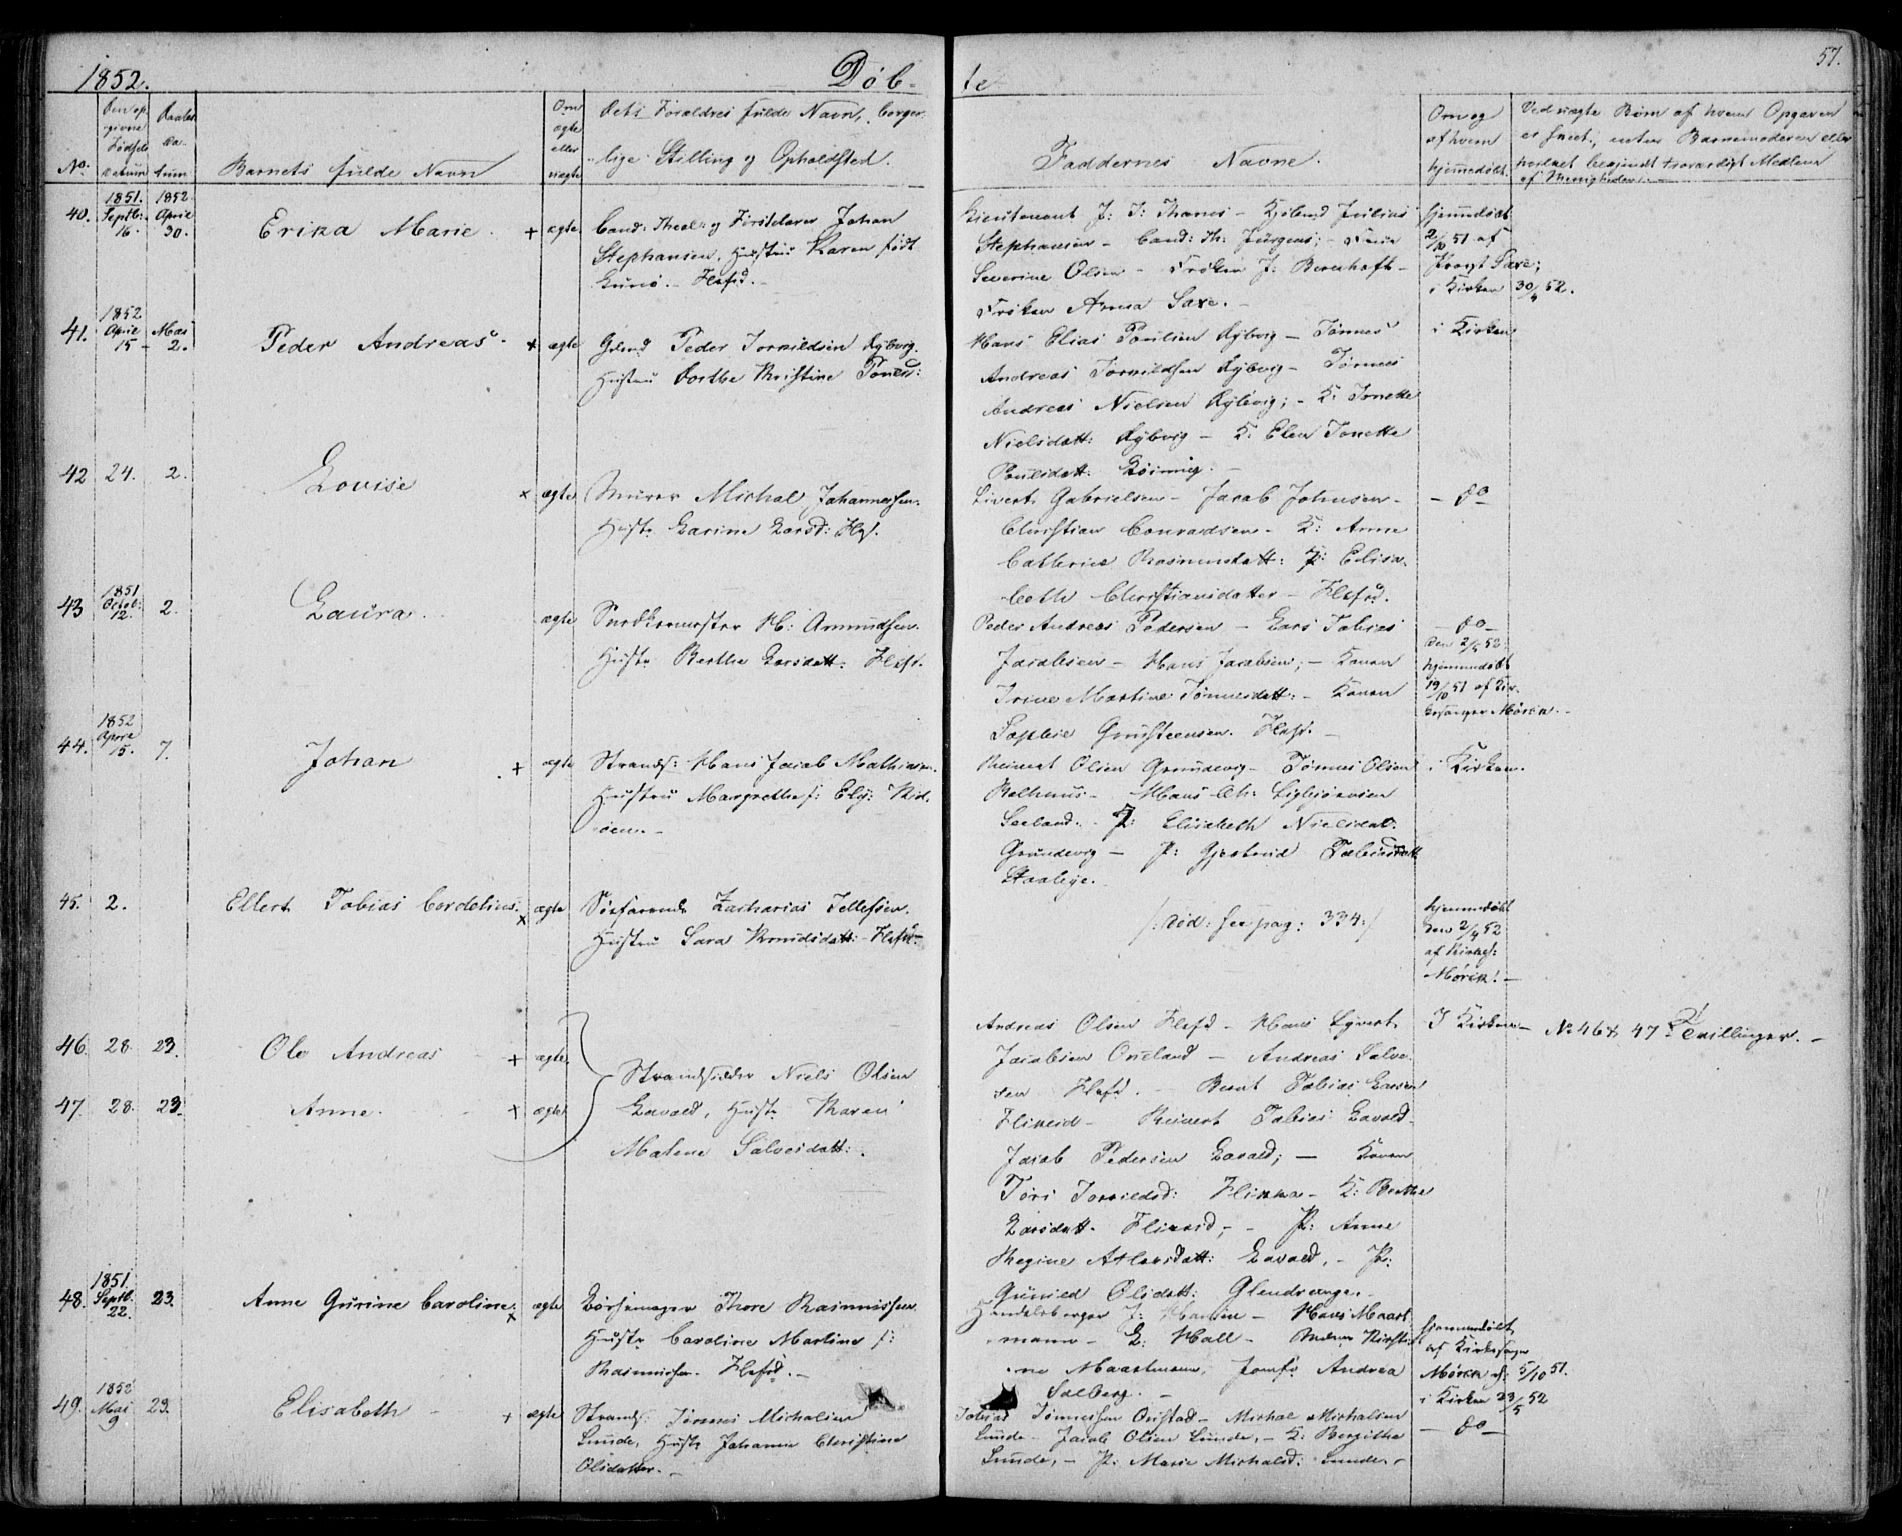 1852.
Døb-
te
57.
No.
Den op-
givne
Fødsels
Datum
Daabs
Da-
tum
Barnets fulde Navn
Om
ægte
eller
uægte
Dets Forældres fulde Navn, borger-
lige Stilling og Opholdsted.
Faddernes Navne.
Om og
af hvem
hjemmedøbt.
Ved uægte Børn af hvem Opgaven
er skeet, enten Barnemoderen eller
af Menigheden.
40.
1851.
Septbr:
16.
1852
April
30.
Erika Marie.
+ ægte
Cand: Theol: og Johan
Stephansen, Hustru Karen født
Lunø. - Flekfd. -
Lieutenant J: J: Thams - Kjøbmd Julius
Stephansen - Cand: Th: Jürgens; -
Severine Olsen - Frøken J: Berenhoft -
Frøken Anna Saxe. -
hjemmedøbt
2/10 51 af
Provst Saxe;
i Kirken 30/4 52.
41.
1852
April
15 -
Mai
2.
Peder Andreas.
+ ægte
Grmd Peder Torkildsen Rybvig.
Hustru Dorthe Kristine Tønesd:
Hans Elias Poulsen Rybvig - Tønnes
Andreas Torkildsen Rybvig - Tønnes
Andreas Nielsen Rybvig; - K: Tonette
Nielsdatt: Rybvig - K: Elen Tonette
Poulsdatt.
i Kirken
42
24.
2.
Lovise
x ægte
Murer Michal Johannessen.
Hustr. Larine Larsd: Flf.
Sivert Gabrielsen - Jacob Johnsen -
Christian Conradsen - K: Anne
Cathrine Rasmusdatt: P: Elisa-
beth Christiansdatter - Flekfd.
- do -
43
1851
Octob:
12.
2.
Laura.
ægte
Snedkermester H. Amundsen.
Hustr. Berthe Larsdatt. Flekf.
Peder Andreas Pedersen - Lars Tobias
Jacobsen - Hans Jacobsen; - Konen
Trine Martine Tønnesdatt: - Konen
Sophie Flekf. -
- do -
Den 2/5 52
hjemmedøbt
19/10 51 af Kir-
kesanger Mørck. -
44.
1852
April
15.
7.
Johan
+ ægte
Strands: Hans Jacob Mathias
Hustru Margrethe f: Ely:
Reinert Olsen Grundevig - Tønnes Olsen
- Hans Ch: Sigbjørnsen
Seeland. - P: Elisabeth Nielsdat.
Grundevig - P: Gjertrud Tobiasdatt
i Kirken.
45.
2.
Ellert Tobias Cordelius.
x ægte
Søefarende Zacharias Tellefsen.
Hustru Sara Knudsdatt: - Flekfd. -
/: død: see pag: 334 :/
hjemmedøbt
den 2/4 52
af Kirkes:
Mørck! -
46.
28.
23.
Ole Andreas
+ ægte
47.
28.
23.
Anne.
+ ægte
Strandsidder Niels Olsen
Lavold, Hustr. Karen
Malene Salvesdatt:
Andreas Olsen Flekfd - Hans Syvert
Jacobsen Omland - Andreas Salve-
sen Flekfd. - Bernt Tobias Larsen
Flikeid - Reinert Tobias Lavold -
Jacob Pedersen Lavold; - Konen
Tori Torkildsd: Flikka - K: Berthe
Larsdatt. Flikeid; - P: Anne
Regine Atlaksdatt: Lavold, - P:
Gunild Olsdatt: Glendrange. -
I Kirken -
No 46 & 47 Tvillinger. -
48.
1851.
Septb.
22.
23.
Anne Gurine Caroline.
x ægte
Børsemager Thore Rasmussen
Hustr. Caroline Martine f:
Rasmussen. Flekfd. -
Handelsborger J: Hansen - Hans Maart-
mann - E: Hall - Madam Kirsti-
ne Maartmann, Jomfr. Andrea
Salberg. -
hjemmedøbt
af Kirkesanger
Mørck d: 5/10 51.
i Kirken 23/5 52
49.
1852
Mai
9
23.
Elisabeth -
+ ægte
Strands: Tønnes Michalsen
Lunde, Hustr. Johanne Christine
Olsdatter. -
Tobias Tønnessen Onstad - Michal Michalsen
Lunde - Jacob Olsen Lunde, - K: Bergithe
Lunde, - P: Marie Michalsd: Lunde. -
- do -